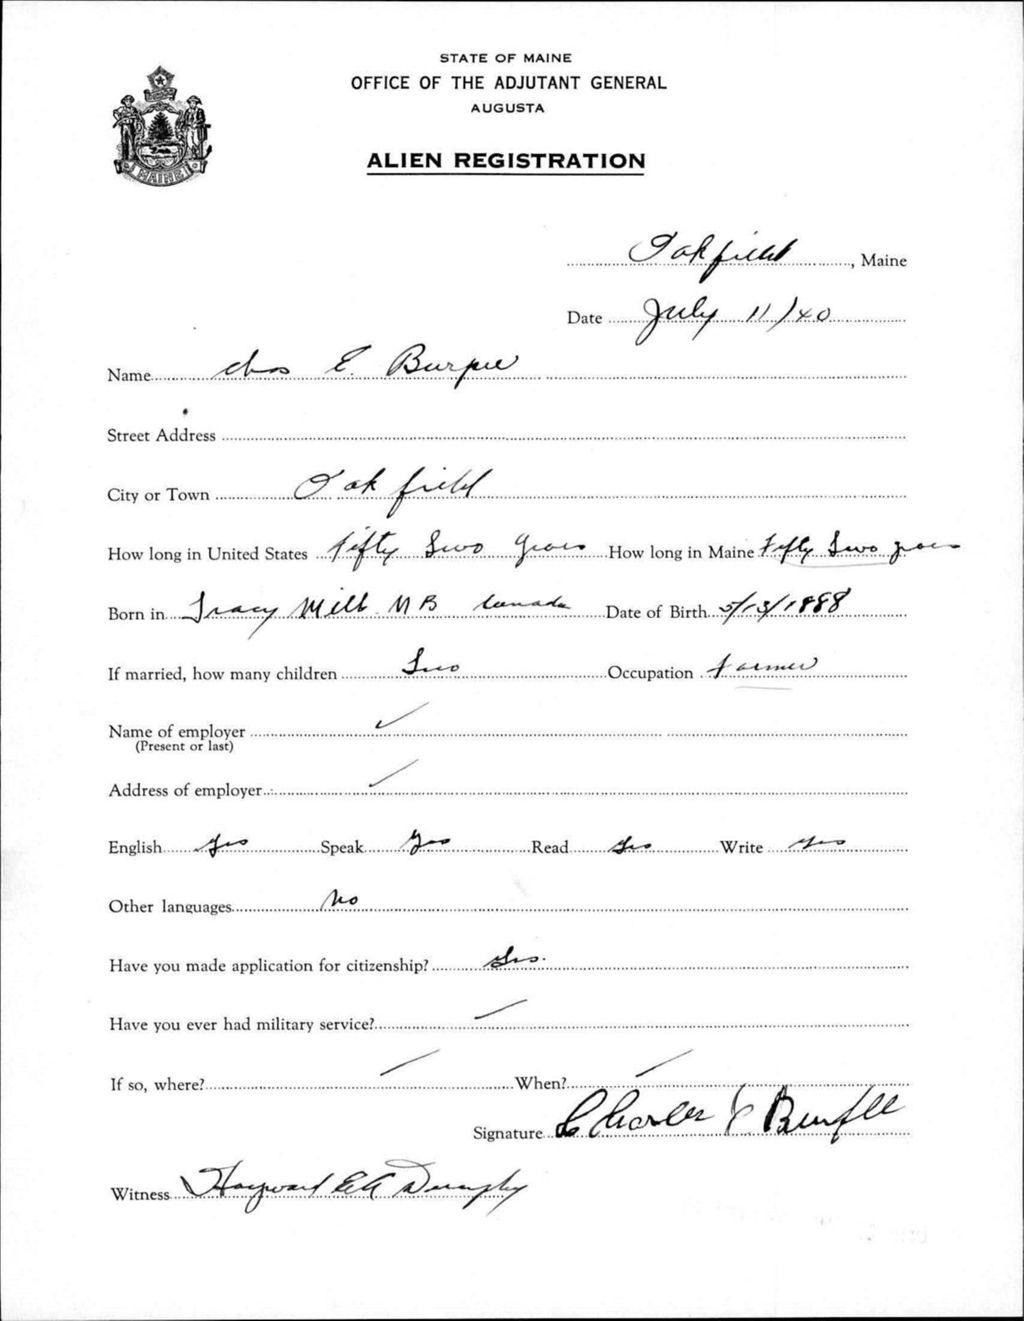 STATE OF MAINE
OFFICE OF THE ADJUTANT GENERAL
AUGUSTA
MAINE
ALIEN REGISTRATION
Oakfield, Maine
Date July 11/40
Name Chas E. Burpee
Street Address
City or Town Oakfield
How long in United States Fifty Two years How long in Maine Fifty Two years
Born in Tracy Mill NB Canada Date of Birth 5/13/1888
If married, how many children Two Occupation Farmer
Name of employer
(Present or last)
Address of employer
English Yes Speak Yes Read Yes Write Yes
Other languages No
Have you made application for citizenship? Yes.
Have you ever had military service?
If so, where? When?
Signature Charles E Burpee
Witness Hayward